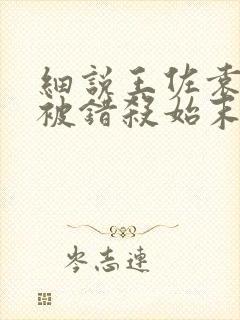 細說王佐袁
被錯殺始末
岑志連